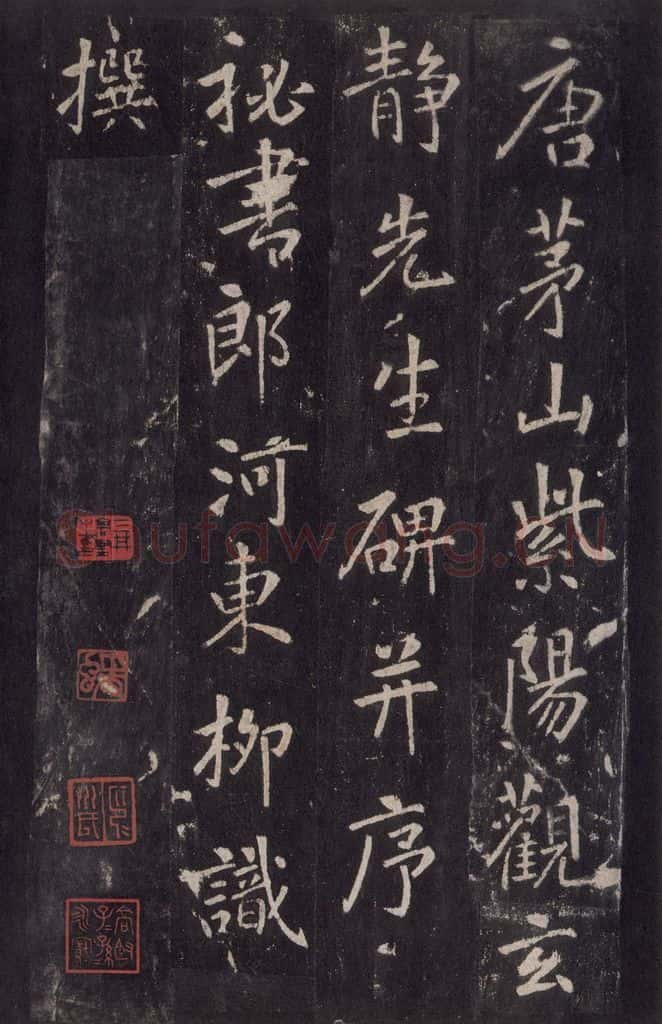 唐茅山紫陽觀玄
靜先生碑并序
秘書郎河東柳識
撰
Shufawang.CN